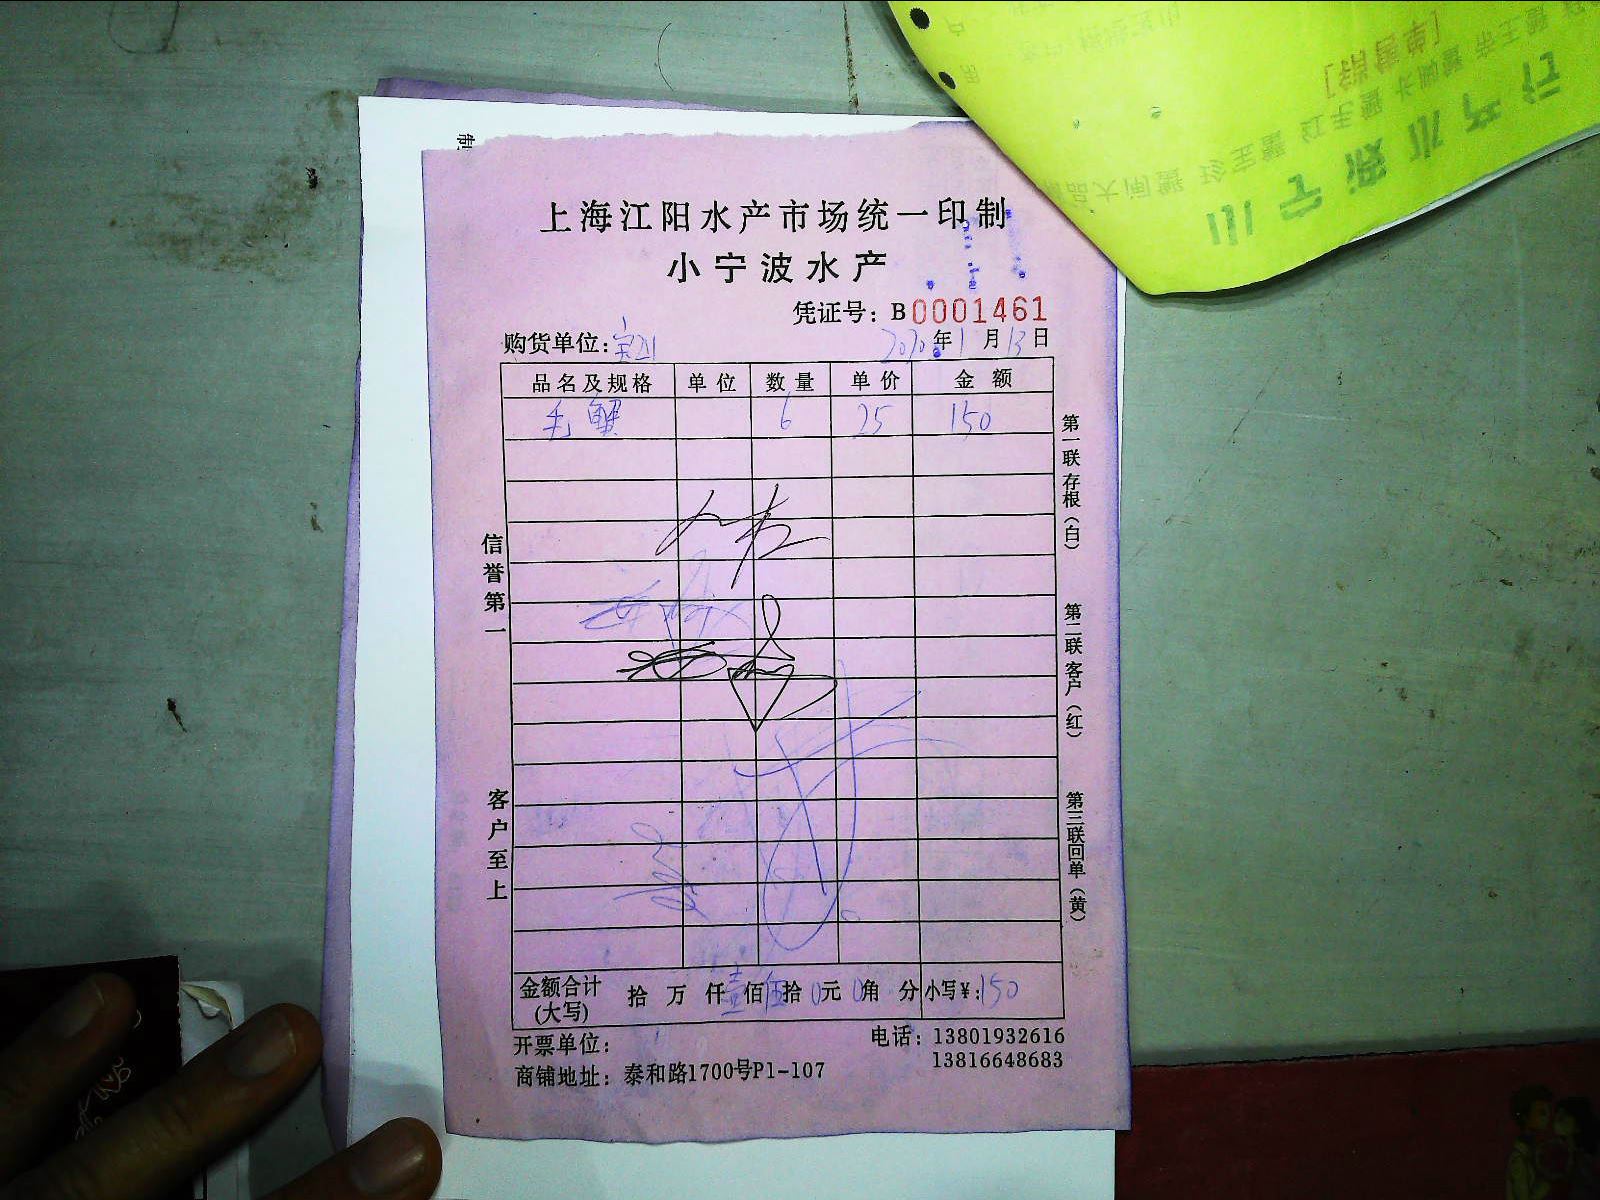 上海江阳水产市场统一印制
小宁波水产
凭证号：B0001461
购货单位：宝21 2020年1月13日
品名及规格 单位 数量 单价 金额
毛蟹 6 25 150
信誉第一
客户至上
第一联存根（白）
第二联客户（红）
第三联回单（黄）
金额合计(大写) 拾 万 仟 壹佰 伍拾 0元 0角 分 小写¥：150
开票单位：
电话：13801932616
13816648683
商铺地址：泰和路1700号P1-107